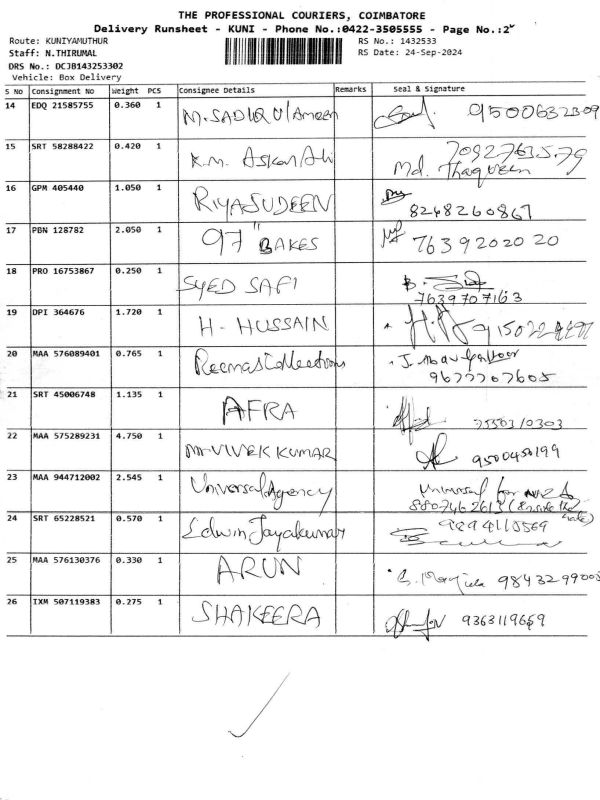 THE PROFESSIONAL COURIERS, COIMBATORE
Delivery Runsheet - KUNI - Phone No.:0422-3505555 - Page No.:2
Route: KUNIYAMUTHUR RS No.: 1432533
Staff: N.THIRUMAL RS Date: 24-Sep-2024
DRS No.: DCJB143253302
Vehicle: Box Delivery
S No Consignment No Weight PCS Consignee Details Remarks Seal & Signature
14 EDQ 21585755 0.360 1 M. SADIQ Ul Ameen 9500632309
15 SRT 58288422 0.420 1 K.M. Askar Ali 7092763579
Md. Thaqveen
16 GPM 405440 1.050 1 RIYASUDEEN
8248260867
17 PBN 128782 2.050 1 97" BAKES 7639202020
18 PRO 16753867 0.250 1 SYED SAFI
7639707163
19 DPI 364676 1.720 1 H. HUSSAIN
20 MAA 576089401 0.765 1 Reemas Collections
9677707605
21 SRT 45006748 1.135 1 AFRA
7550310303
22 MAA 575289231 4.750 1 Mr VIVEK KUMAR 9500450199
23 MAA 944712002 2.545 1 Universal Agency Universal
8807462613
24 SRT 65228521 0.570 1 Edwin Jayakumar 9894110569
25 MAA 576130376 0.330 1 ARUN 9843299003
26 IXM 507119383 0.275 1 SHAKEERA 9363119659